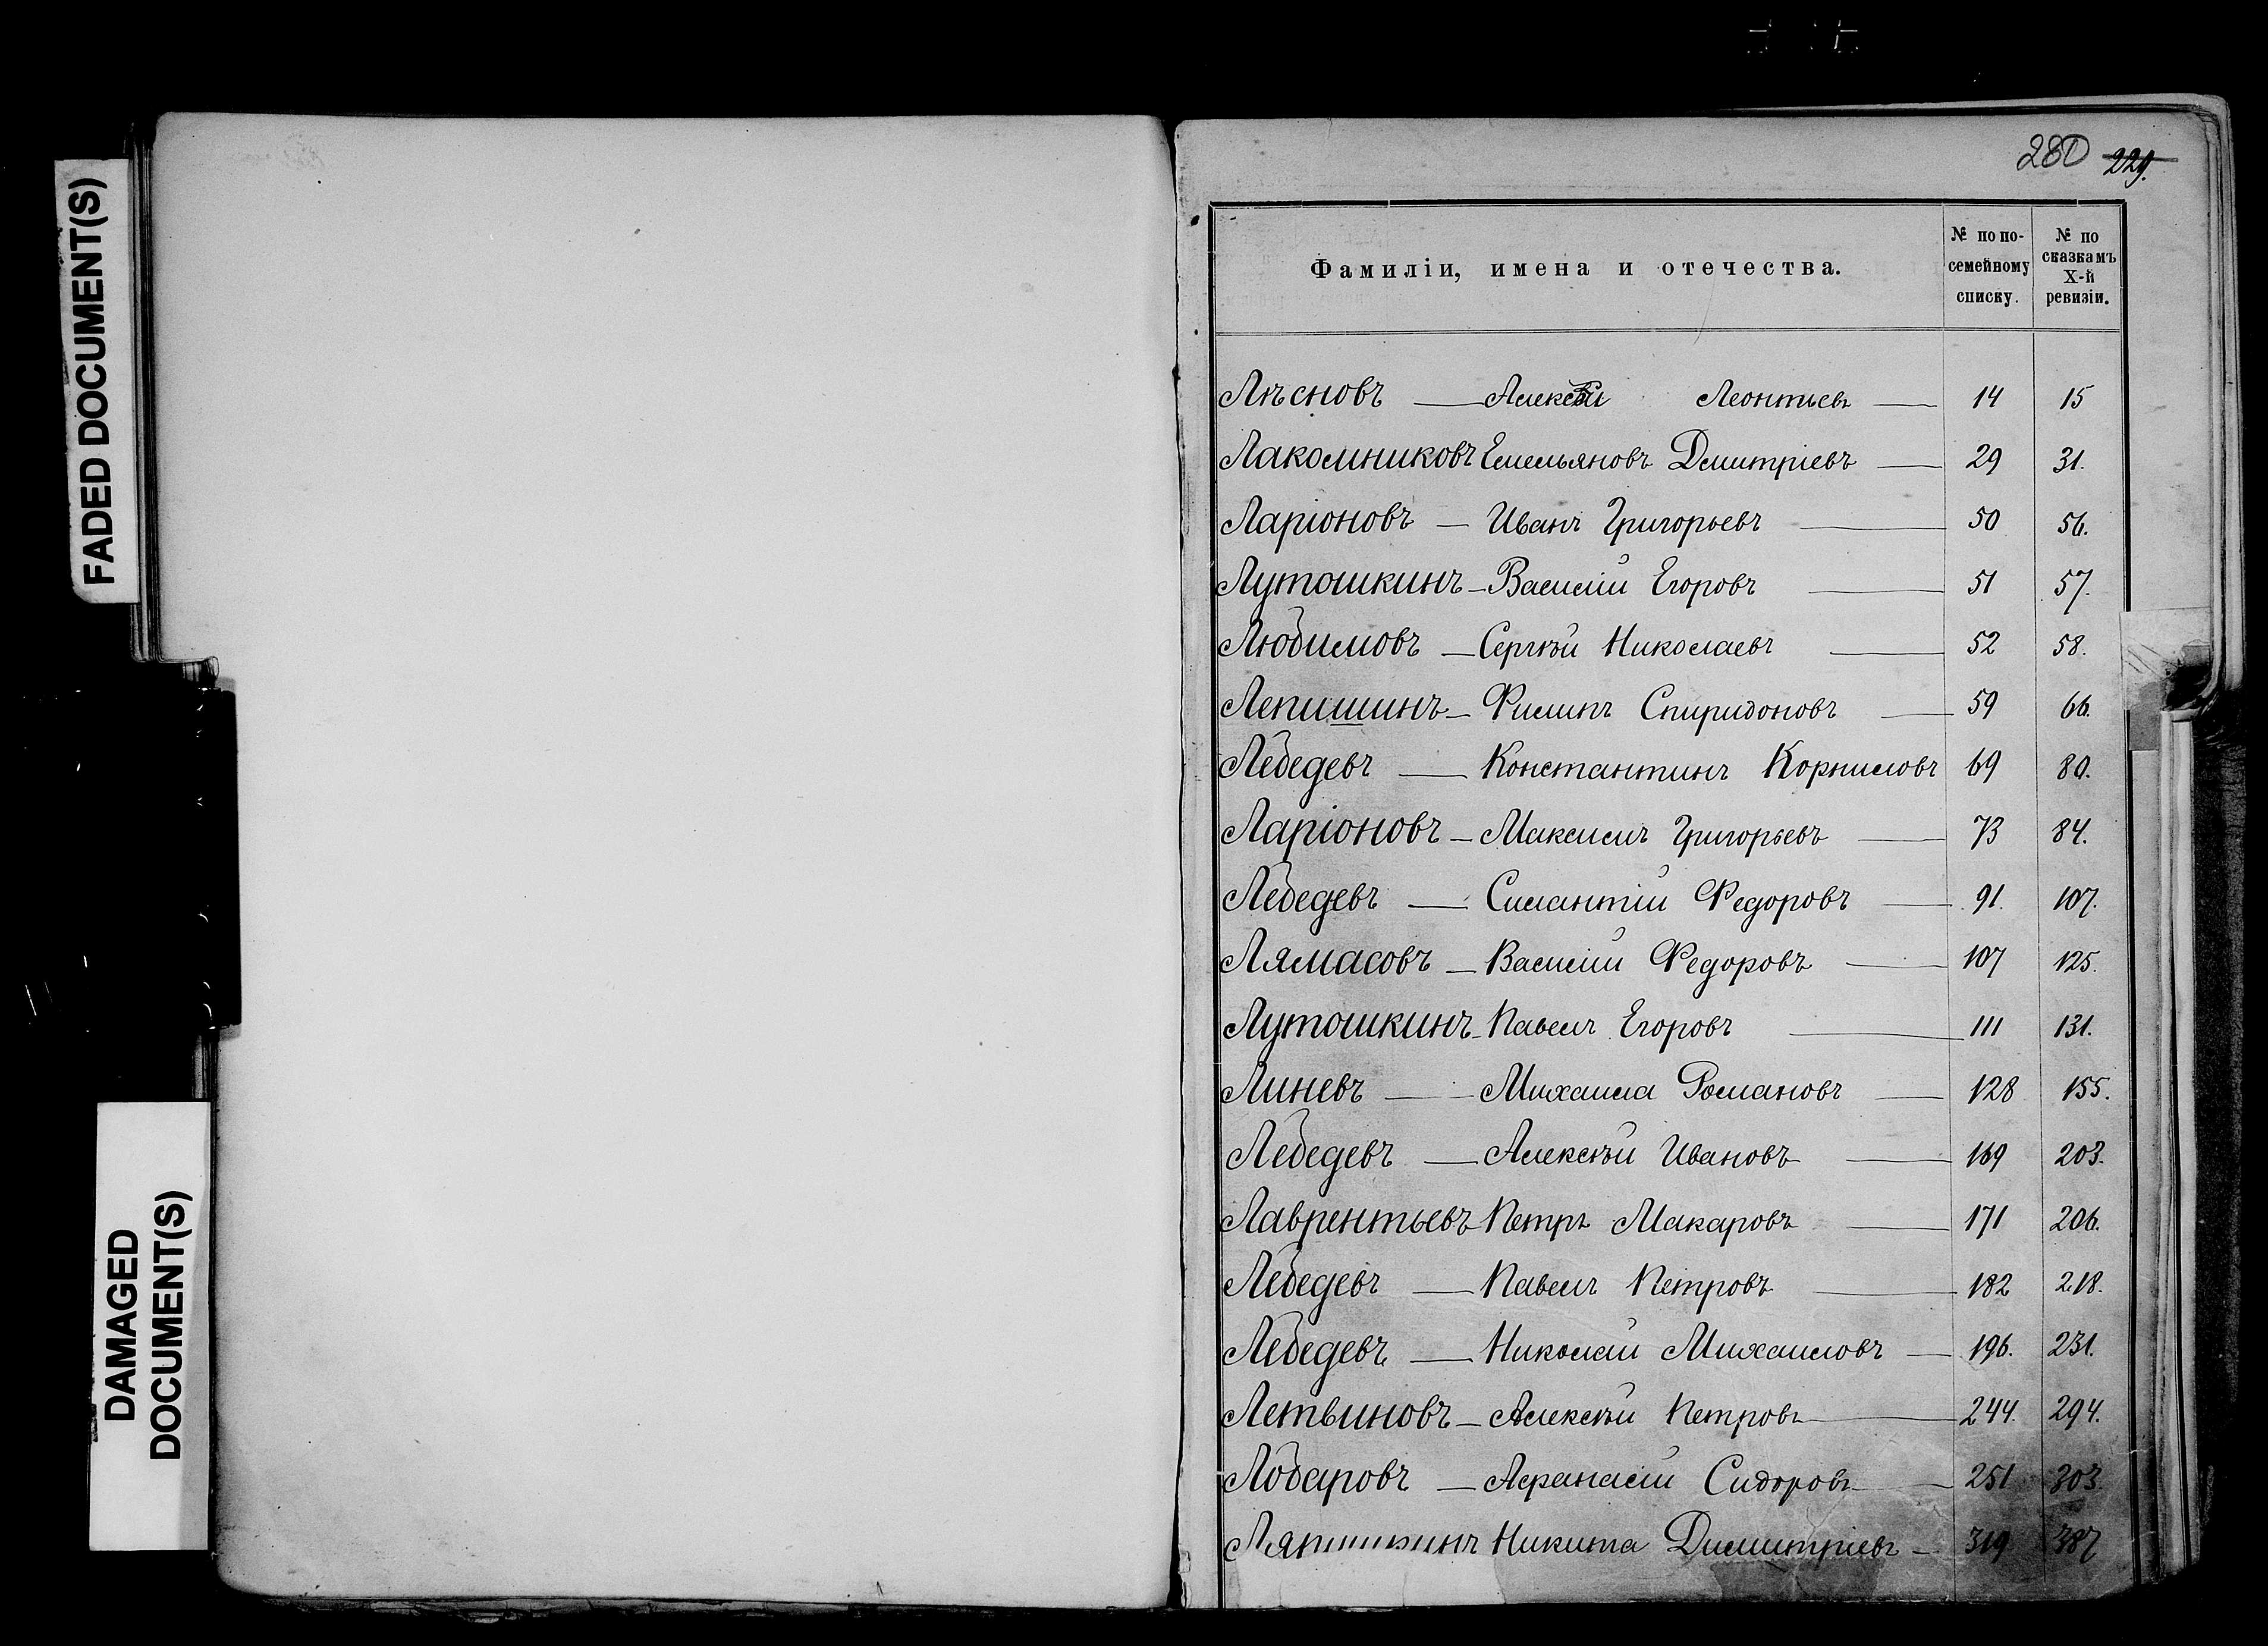 FADED DOCUMENT(S)
DAMAGED
DOCUMENT(S)
280 229.
Фамиліи, имена и отечества.
№ по по-
семейному
списку.
№ по
сказкамъ
X-й
ревизіи.
Лѣсновъ — Алексѣй Леонтьевъ — 14 15
Лакомниковъ Емельяновъ Дмитріевъ — 29 31.
Ларіоновъ — Иванъ Григорьевъ — 50 56.
Лутошкинъ — Василій Егоровъ — 51 57.
Любимовъ — Сергѣй Николаевъ — 52 58.
Лепишинъ — Филипъ Спиридоновъ — 59 66.
Лебедевъ — Константинъ Корниловъ 69 80.
Ларіоновъ — Максимъ Григорьевъ — 73 84.
Лебедевъ — Силантій Федоровъ — 91. 107.
Лямасовъ — Василій Федоровъ — 107 125.
Лутошкинъ — Павелъ Егоровъ — 111 131.
Линевъ — Михаила Романовъ — 128 155.
Лебедевъ — Алексѣй Ивановъ — 169 203.
Лаврентьевъ Петръ Макаровъ — 171 206.
Лебедевъ — Павелъ Петровъ — 182 218.
Лебедевъ — Николай Михаиловъ — 196. 231.
Летвиновъ — Алексѣй Петровъ — 244. 294.
Лобаровъ — Афанасій Сидоровъ — 251 303.
Никита Димитріевъ — 319 387